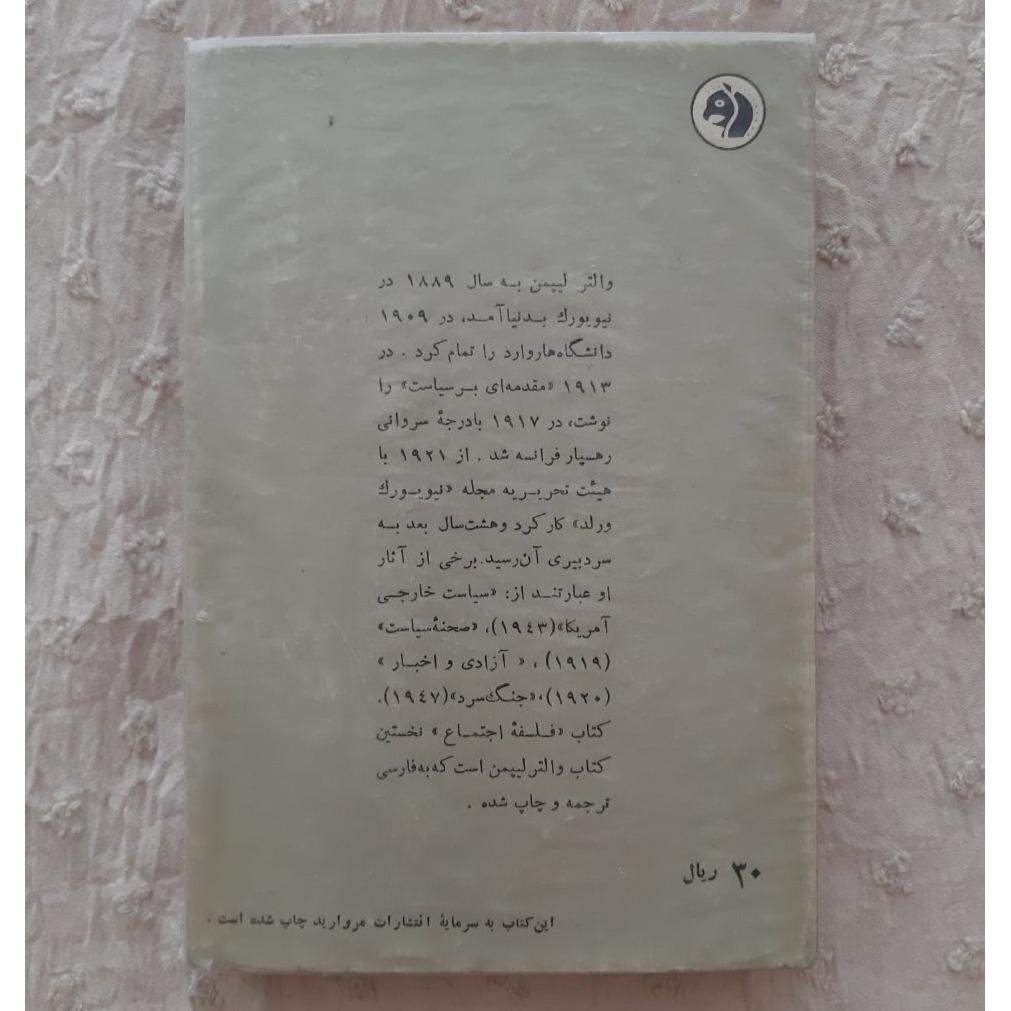 والتر لیپمن بـه سال ۱۸۸۹ در
نیویورك بـدنیاآمـد، در ۱۹۰۹
دانشگاه‌هاروارد را تمام کرد . در
۱۹۱۳ «مقدمه‌ای بـر سیاست» را
نوشت، در ۱۹۱۷ بادرجهٔ سروانی
رهسپار فرانسه شد . از ۱۹۲۱ با
هیئت تحریـریه مجله «نیویـورك
ورلد» کار کرد و هشت‌سال بعد بـه
سردبیری آن‌رسید. برخی از آثار
او عبارتنـد از: «سیاست خارجـی
آمریکا»(۱۹٤۳)، «صحنهٔ سیاست»
(۱۹۱۹) ، « آزادی و اخبـار »
(۱۹۲۰)، «جنگ‌سرد»(۱۹٤۷).
کتاب «فـلسفهٔ اجتمـاع » نخستین
کتاب والتر لیپمن است که به فارسی
ترجمه و چاپ شده .
۳۰ ریال
این کتاب به سرمایهٔ انتشارات مروارید چاپ شده است .